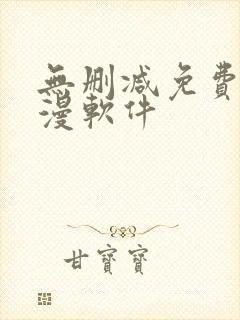 無刪減免費
漫軟件
甘寶寶